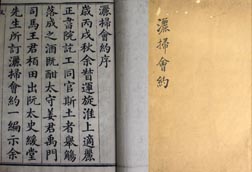 灑掃會約
灑掃會約序
歲丙戌秋余督運旋淮上適麗
正書院訖工司官斯土者舉觴
落成之酒既酣太守姜君禹門
司馬王君栢田出阮太史緩堂
先生所訂灑掃會約一編示余